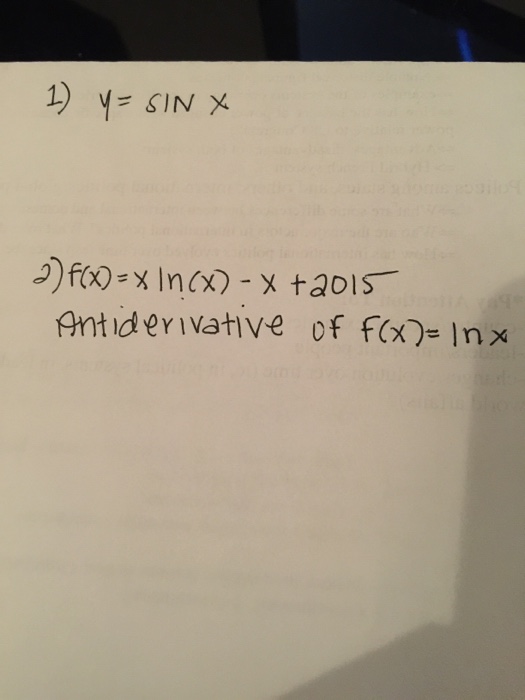 1) y = SIN x
2) f(x) = x ln(x) - x + 2015
Antiderivative of f(x) = ln x